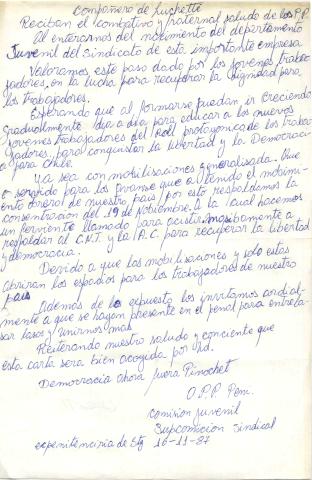 Compañero de Luchette
Reciban el combativo y fraternal saludo de los P.P.
Al enterarnos del nacimiento del departamento
Juvenil del Sindicato de esta importante empresa
Valoramos este paso dado por los jovenes traba-
jadores, en la lucha para recuperar la dignidad para
los trabajadores.
Esperando que al formarse puedan ir creciendo
gradualmente dia a dia para educar a los nuevos
jovenes trabajadores del roll protagonico de los traba-
jadores, para conquistar la libertad y la Democraci-
a para Chile.
ya sea con mobilisaciones generalisada. Que
a servido para los avanse que a tenido el movimi-
ento obrero de nuestro pais, por esto respaldamos la
consentracion del 19 de Noviembre. A la cual hacemos
un ferviente llamado para asistir masibamente a
respaldar al C.N.T. y la A.C. para recuperar la libertad
y democracia.
Devido a que las mobilisaciones y solo estas
abriran los espasios para los trabajadores de nuestro
pais
Ademas de lo expuesto los invitamos cordial-
mente a que se hagan presente en el penal para entrela-
sar lasos y unirnos mas
Reiterando nuestro saludo y conciente que
esta carta sera bien acogida por Ud.
Democracia Ahora fuera Pinochet
O.P.P. Pem.
comision juvenil
Subcomicion Sindical
expenitenciria de Stg 16-11-87